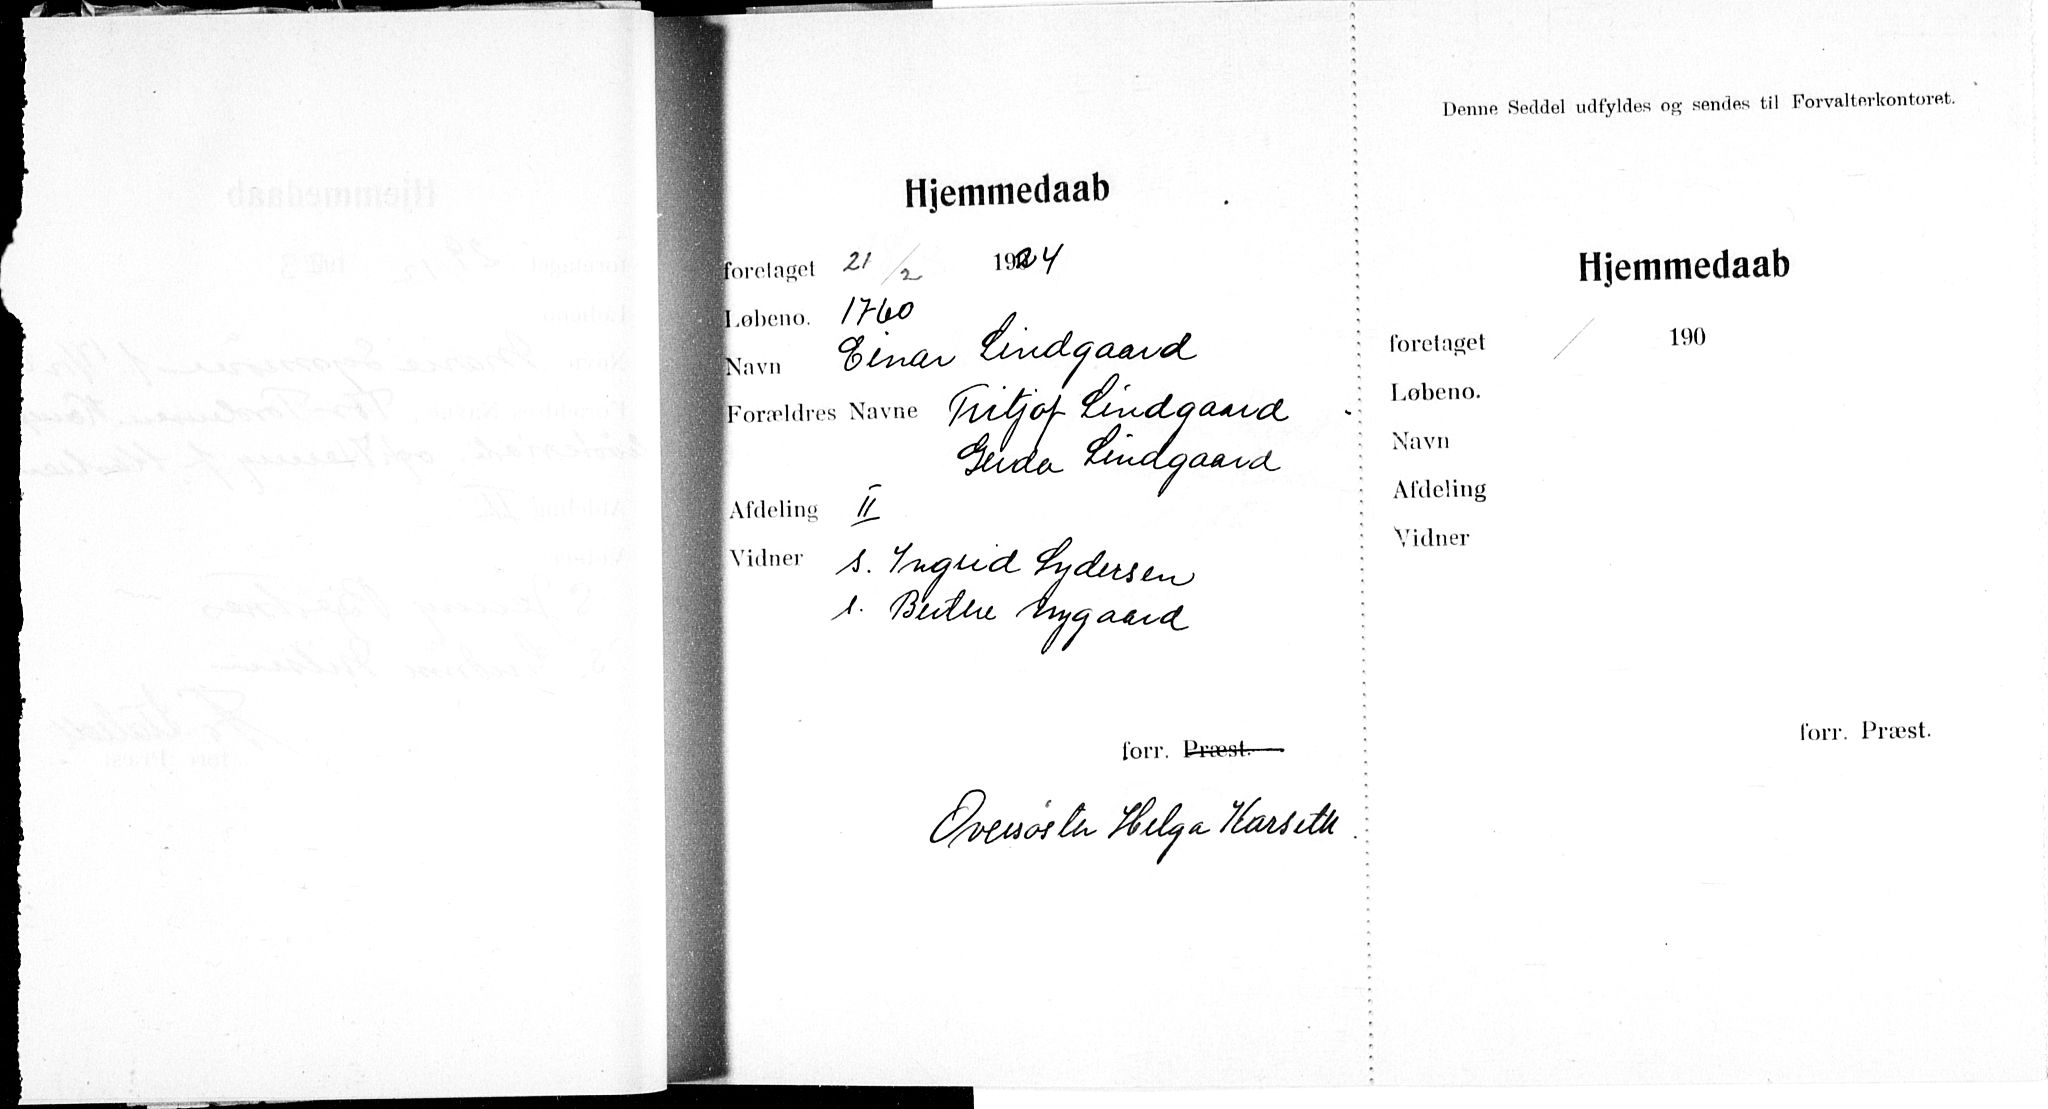 Hjemmedaab
foretaget 21/2 1924
Løbeno. 1760
Navn Einar Lindgaard
Forældres Navne Fritjof Lindgaard
Gerda Lindgaard
Afdeling II
Vidner s. Ingrid Lydersen
s. Berthe Nygaard
forr. Præst.
Oversøster Helga Karseth
Denne Seddel udfyldes og sendes til Forvalterkontoret.
Hjemmedaab
foretaget / 190
Løbeno.
Navn
Afdeling
Vidner
forr. Præst.